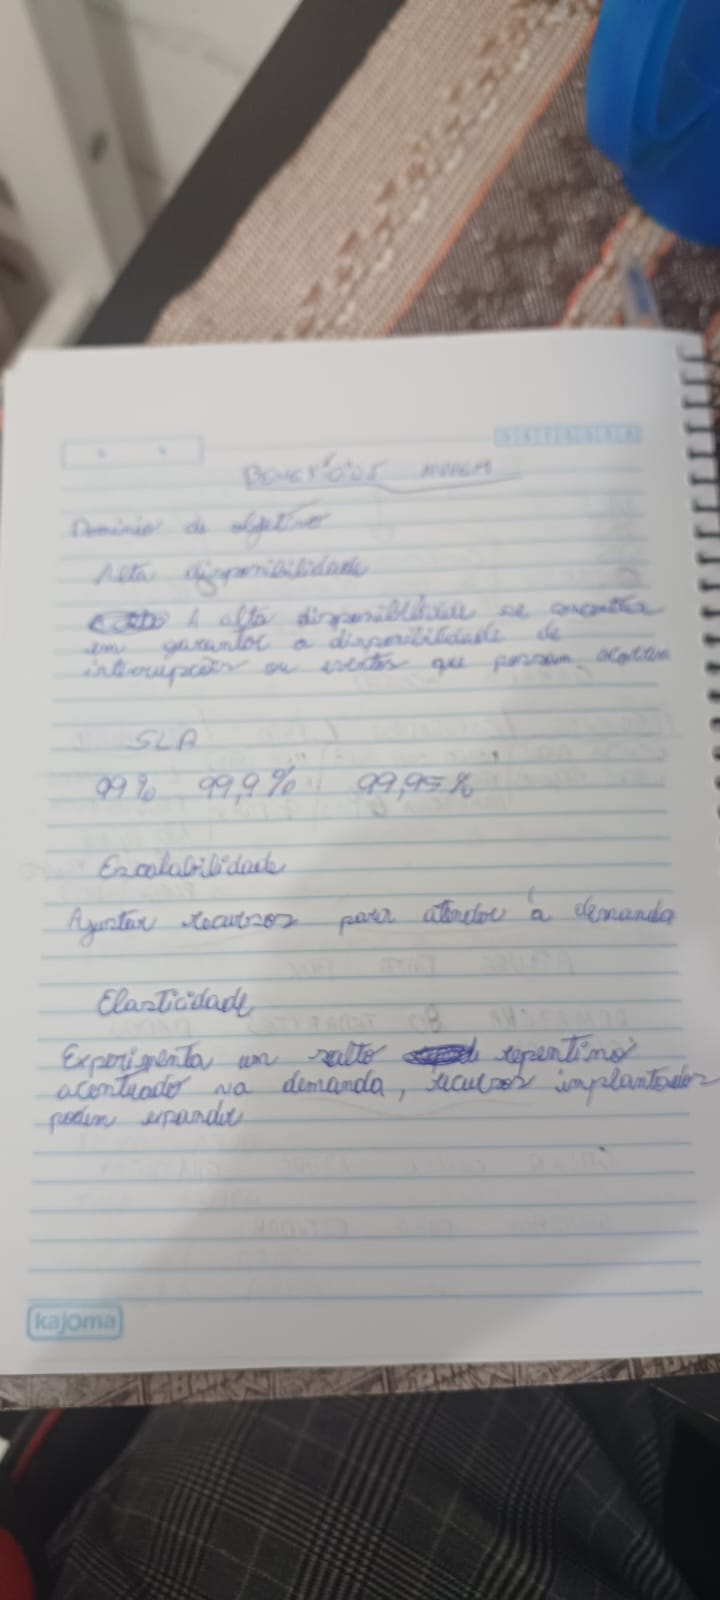 BENEFÍCIOS NUVEM
Domínio de objetivo
Alta disponibilidade
A alta disponibilidade se concentra
em garantir a disponibilidade de
interrupções ou eventos que possam
SLA
99% 99,9% 99,95%
Escalabilidade
Ajustar recursos para atender à demanda
Elasticidade
Experimenta um salto repentino
acentuado na demanda, recursos implantados
podem expandir
kajoma